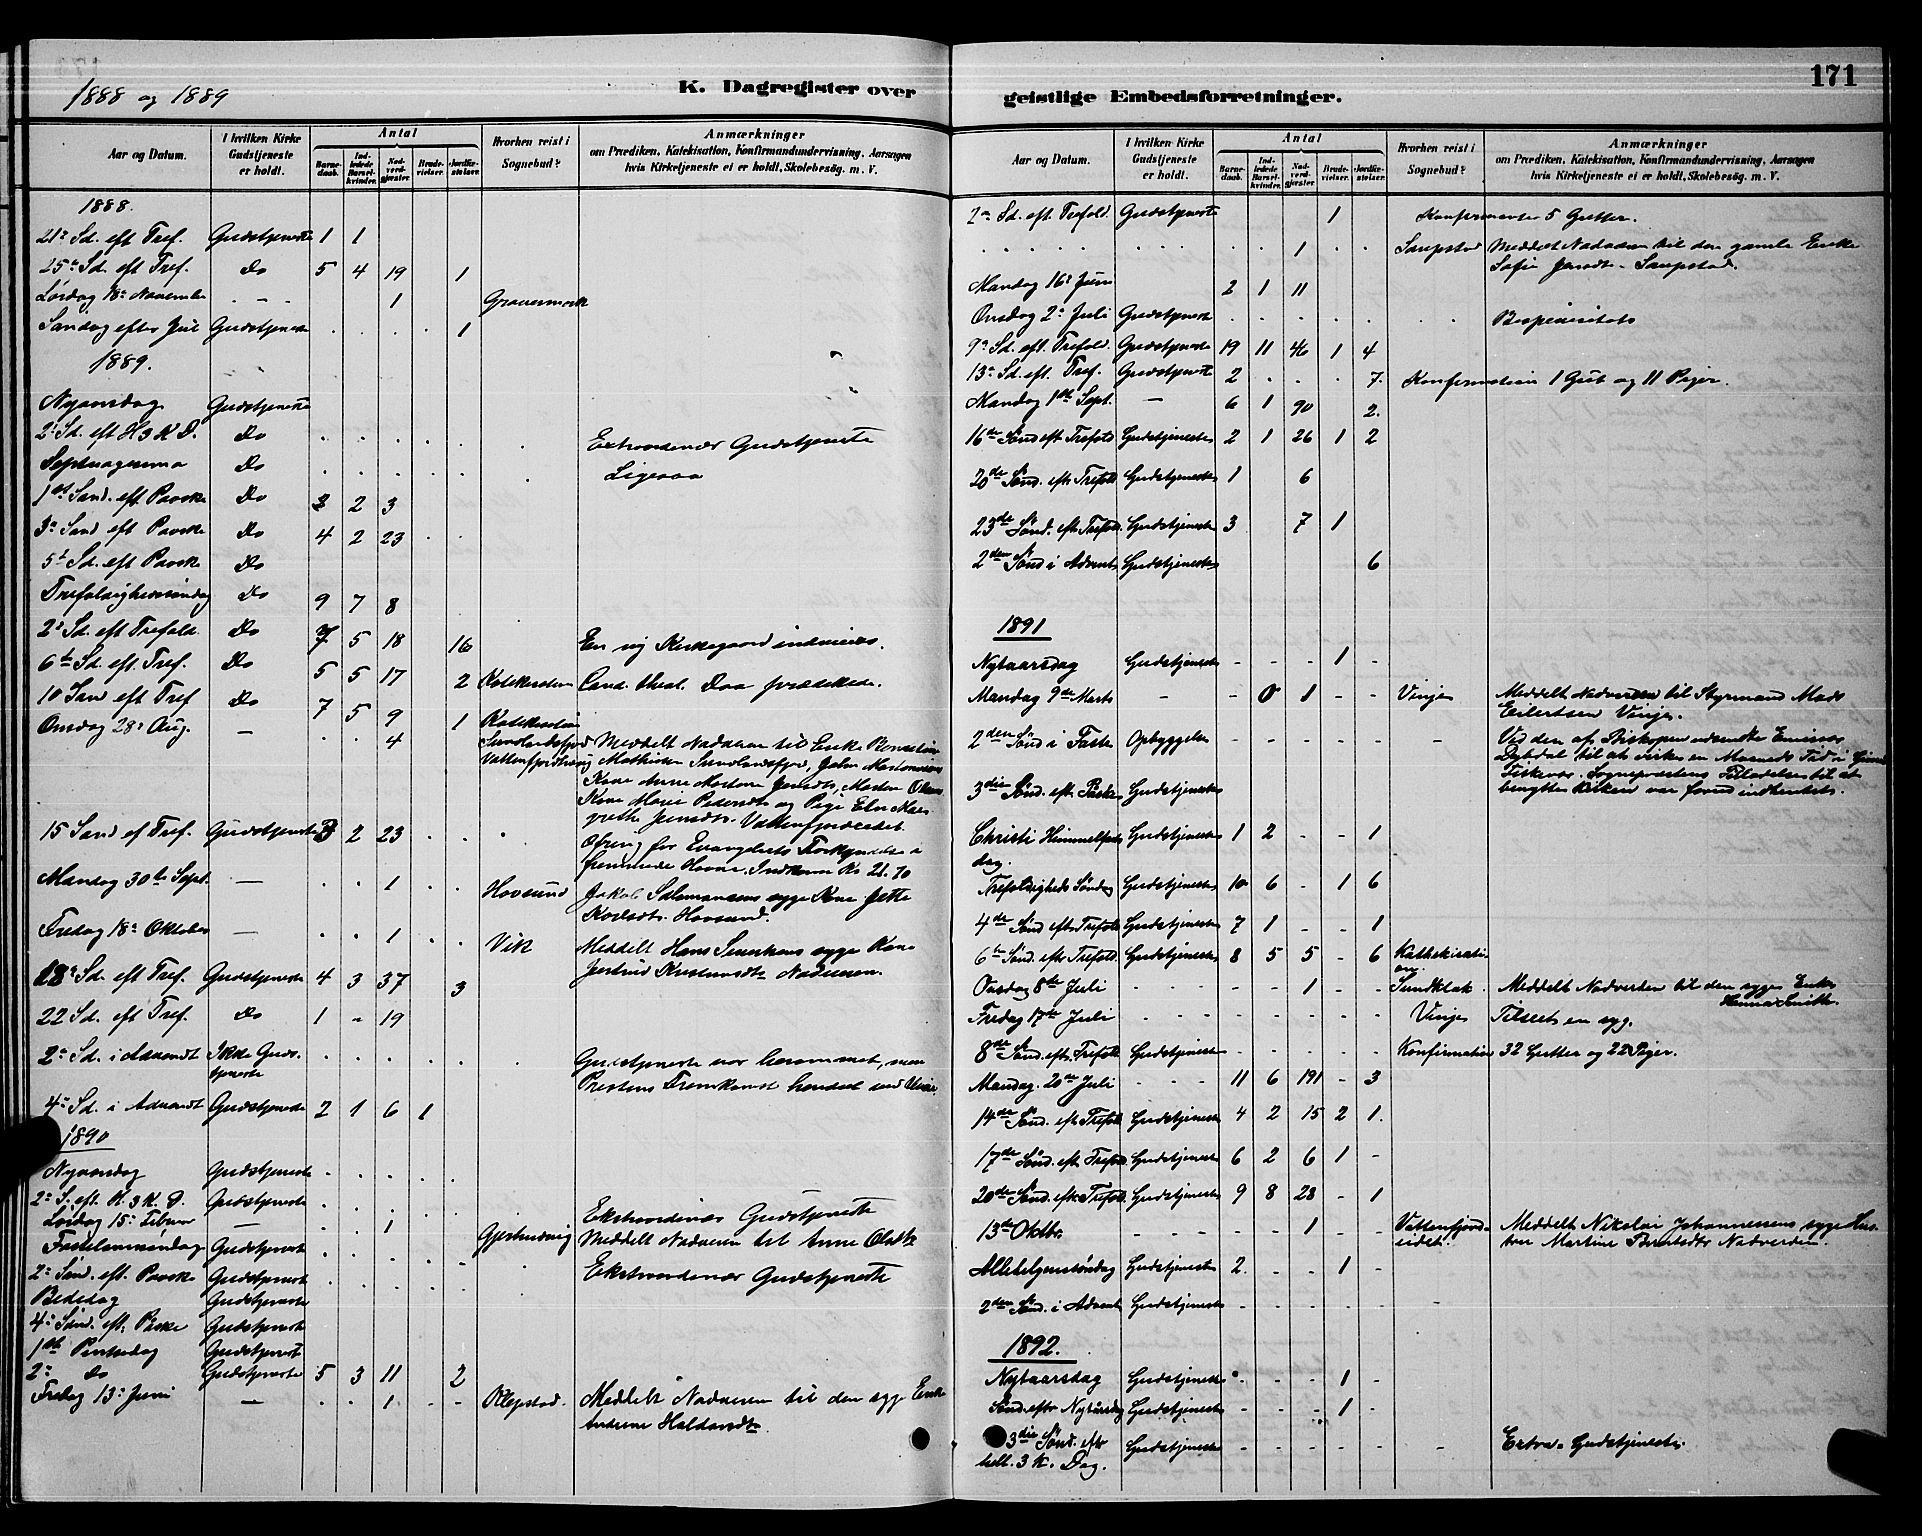 1888 og 1889
K. Dagregister over
Aar og Datum. I hvilken Kirke Gudstjeneste er holdt. Antal Barnedaab. Indledede Barselkvinder. Nadverdgjæster. Brudevielser. Jordfæstelser. Hvorhen reist i Sognebud? Anmærkninger
om Prædiken, Katekisation, Konfirmandundervisning, Aarsagen
hvis Kirketjeneste ei er holdt, Skolebesøg. m. V.
1888.
21de Sd. eft Tref. Gudstjeneste 1 1
25de Sd. eft Tref. Do 5 4 19 1
Lørdag 18de Novembr - - 1 Gravermark
Søndag efter Jul Gudstjeneste . . . . 1
1889.
Nyaarsdag Gudstjeneste
2de Sd. eft H 3 K D. Do . . . . . . Extraordinær Gudstjeneste
Septuagesima Do . . . . . Ligesaa
1ste Sønd. eft. Paaske Do 3 2 3
3de Sønd eft Paaske Do 4 2 23 . .
5te Sd. eft Paaske Do
Trefoldighedssøndag Do 9 7 8
2de Sd. eft Trefold. Do 7 5 18 16 En ny Kirkegaard indviedes.
6te Sd. eft. Tref. Do 5 5 17 2 Katekisation Cand. theol. Daa prædikede.
10 Sønd eft Tref Do 7 5 9 1 Katekisation
Onsdag 28de Aug. — . . 4 Sundlandsfjord Meddelt Nadveren til Enke
Mathisen Sundlandsfjord, John
Kone Anne
Kone Maren Pedersdt. og Pige Elen
15 Sønd ef Tref. Gudstjeneste 3 2 23 . . . Ofring for Evangeliets Forkyndelse i
fremmede Havne. Indkom Kr 21.70
Mandag 30te Sept. — . . 1 . . Hovsund Jakob Salomonsens syge Kone Jette
Hovsund.
Fredag 18de Oktober — . . 1 . . Vik Meddelt Hans syge Kone
Nadveren.
18de Sd. eft Tref. Gudstjeneste 4 3 37 3
22 Sd. eft Tref. Do 1 - 19
2de Sd. i Advendt Ikke Gudstjeneste . . . . . . Gudstjeneste var berammet, men
Prestens Fremkomst hindret ved Uveir.
4de Sd. i Advendt Gudstjeneste 2 1 6 1
1890
Nyaarsdag Gudstjeneste . . . .
2de S. eft. H. 3 K. D. Gudstjeneste . . . . . Ekstraordinær Gudstjeneste
Lørdag 15de Februar — . . 1 . . Meddelt Nadveren til Anne
Fastelavnssøndag Gudstjeneste . . . . . Ekstraordinær Gudstjeneste
2de Sønd. eft. Paaske Gudstjeneste . . . . .
Bededag Gudstjeneste
4de Sønd. eft. Paaske Gudstjeneste
1ste Pintsedag Gudstjeneste
2de Do Gudstjeneste 5 3 11 2
Fredag 13de Juni — . . 1 . . Ollepstad. Meddelt Nadveren til den syge Enke

171
geistlige Embedsforretninger.
Aar og Datum. I hvilken Kirke Gudstjeneste er holdt. Antal Barnedaab. Indledede Barselkvinder. Nadverdgjæster. Brudevielser. Jordfæstelser. Hvorhen reist i Sognebud? Anmærkninger
om Prædiken, Katekisation, Konfirmandundervisning, Aarsagen
hvis Kirketjeneste ei er holdt, Skolebesøg. m. V.
2de Sd. eft. Trefold. Gudstjeneste 1 5 Gutter.
. . . . . . . . . . 1 . . Saupstad Meddelt Nadveren til den gamle Enke
Saupstad.
Mandag 16de Juni 2 1 11
Onsdag 2de Juli Gudstjeneste . . . . . . Bispevisitats
9de Sd. eft. Trefold. Gudstjeneste 19 11 46 1 4
13de Sd. eft. Tref. Gudstjeneste 2 . . . 7. Konfirmation 1 Gut og 11 Piger.
Mandag 1ste Sept. — 6 1 90 2.
16de Sønd eft Trefold Gudstjeneste 2 1 26 1 2
20de Sønd. eftr Trefold Gudstjeneste 1 6
23de Sønd. eftr Trefold. Gudstjeneste 3 7 1
2den Sønd i Advent Gudstjeneste 6
1891
Nytaarsdag Gudstjeneste - - - 1 -
Mandag 9de Marts - - 0 1 - - Vinje Meddelt Nadverden til Styrmand Mads
Eilertsen Vinje.
2den Sønd i Faste Opbyggelse - - - - - - Ved den af Biskopen udsendte Emissær
Dybdal til at virke en Maaneds Tid i
Fiskevær. Sogneprestens Tilladelse til at
benytte Kirken var forud indhentet.
3die Sønd. eft. Paaske Gudstjeneste
Christi Himmelfarts Gudstjeneste 1 2 - - 1
dag.
Trefoldigheds Søndag Gudstjeneste 10 6 - 1 6
4de Sønd eftr Trefold Gudstjeneste 7 1 - - 1
6te Sønd. eftr Trefold. Gudstjeneste 8 5 5 - 6 Kathekisation
Onsdag 8de Juli - - - - - 1 - - Sundklak Meddelt Nadverden til den syge Enke
Hanna Smith.
Fredag 17de Juli - - - - - - - - Vinje Tilseet en syg.
8de Sønd. eftr. Trefold Gudstjeneste - - - - - Konfirmation 32 Gutter og 22 Piger.
Mandag. 20de Juli - - - 11 6 191 - 3
14de Sønd. eftr Trefold Gudstjeneste 4 2 15 2 1.
17de Sønd. eft. Trefold Gudstjeneste 6 2 6 1 -
20de Sønd. eft. Trefold. Gudstjeneste 9 8 28 - 1
13de Oktbr. - - - - - 1 - - Vattenfjordeidet. Meddelt Nikolai Johannessens syge Hustru
Martine Nadverden.
Allehelgenssøndag Gudstjeneste 2. - - 1 -
2den Sønd. i Advent Gudstjeneste - - - - - -
1892.
Nytaarsdag Gudstjeneste - - - 1 -
Sønd. eftr Nytaarsdag Gudstjeneste - - - 1 -
3die Sønd. eftr Gudstjeneste - - - - - - Extra-Gudstjeneste.
hell. 3 K. Dag.